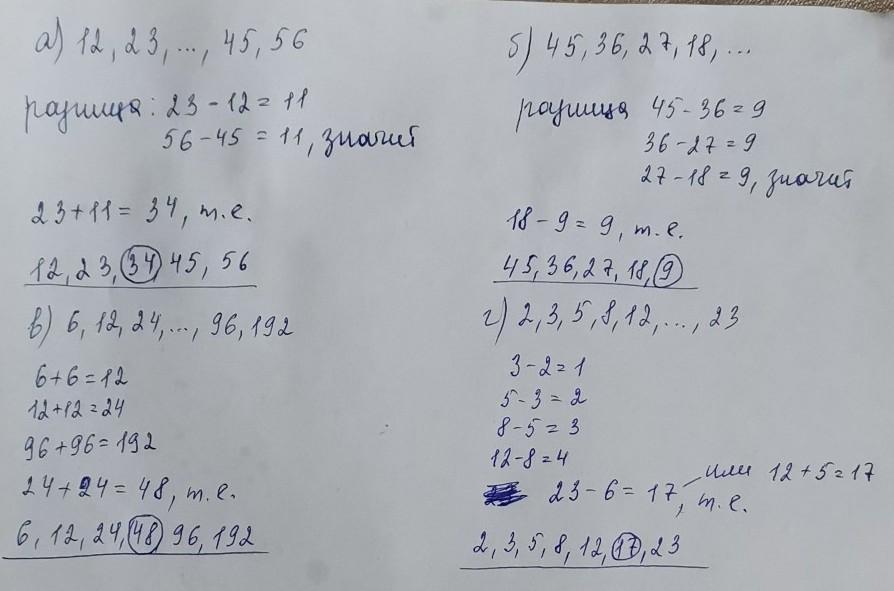 а) 12, 23, ..., 45, 56
разница: 23 - 12 = 11
56 - 45 = 11, значит
23 + 11 = 34, т.е.
12, 23, 34, 45, 56
в) 6, 12, 24, ..., 96, 192
6 + 6 = 12
12 + 12 = 24
96 + 96 = 192
24 + 24 = 48, т.е.
6, 12, 24, 48, 96, 192
б) 45, 36, 27, 18, ...
разница 45 - 36 = 9
36 - 27 = 9
27 - 18 = 9, значит
18 - 9 = 9, т.е.
45, 36, 27, 18, 9
г) 2, 3, 5, 8, 12, ..., 23
3 - 2 = 1
5 - 3 = 2
8 - 5 = 3
12 - 8 = 4
23 - 6 = 17, или 12 + 5 = 17
т.е.
2, 3, 5, 8, 12, 17, 23